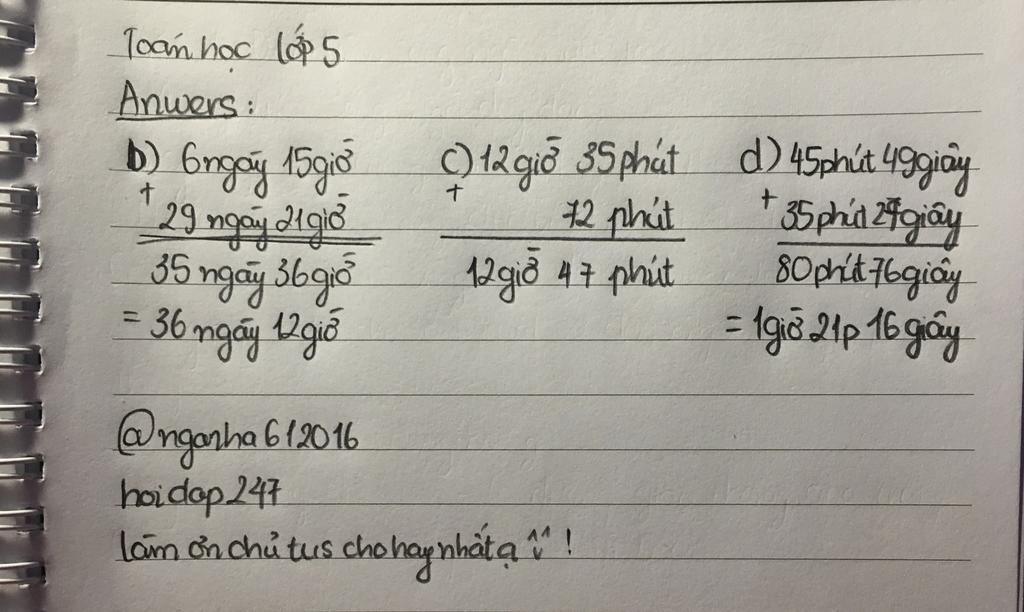 Toán học lớp 5
Anwers:
b) 6 ngày 15 giờ
+ 29 ngày 21 giờ
35 ngày 36 giờ
= 36 ngày 12 giờ
c) 12 giờ 35 phút
+ 12 phút
12 giờ 47 phút
d) 45 phút 49 giây
+ 35 phút 27 giây
80 phút 76 giây
= 1 giờ 21p 16 giây
@nganha612016
hoidap247
làm ơn chủ tus cho hay nhất ạ ^^ !